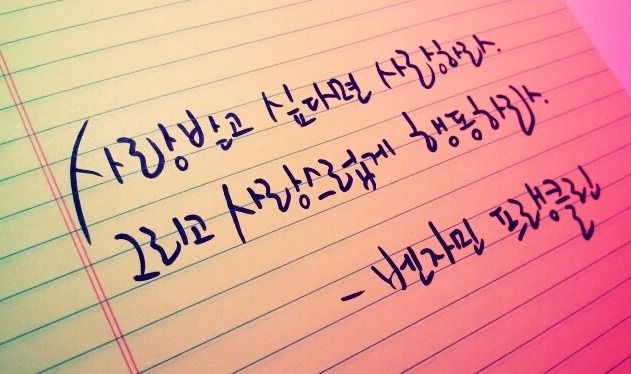 사랑받고 싶다면 사랑하라.
그리고 사랑스럽게 행동하라.
- 벤자민 프랭클린